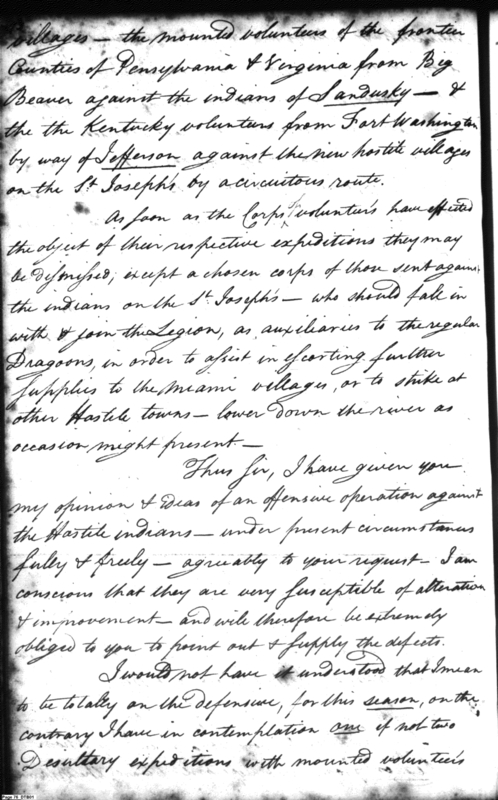 Villages — the mounted volunteers of the frontier
Counties of Pensylvania & Virginia from Big
Beaver against the indians of Sandusky — &
the the Kentucky volunteers from Fort Washington
by way of Jefferson against the new hostile villages
on the St Joseph's by a circuitous route.
As soon as the Corps volunteers have effected
the object of their respective expeditions they may
be dismissed, except a chosen corps of those sent against
the indians on the St Joseph's — who should fall in
with & join the Legion, as auxiliaries to the regular
Dragoons, in order to assist in escorting further
supplies to the Miami villages, or to strike at
other Hostile towns — lower down the river as
occasion might present —
Thus Sir, I have given you
my opinion & ideas of an offensive operation against
the Hostile indians — under present circumstances
fully & freely — agreeably to your request — I am
conscious that they are very susceptible of alteration
& improvement — and will therefore be extremely
obliged to you to point out & supply the defects.
I would not have it understood that I mean
to be totally on the defensive, for this season, on the
contrary I have in contemplation one if not two
Desultory expeditions with mounted volunteers